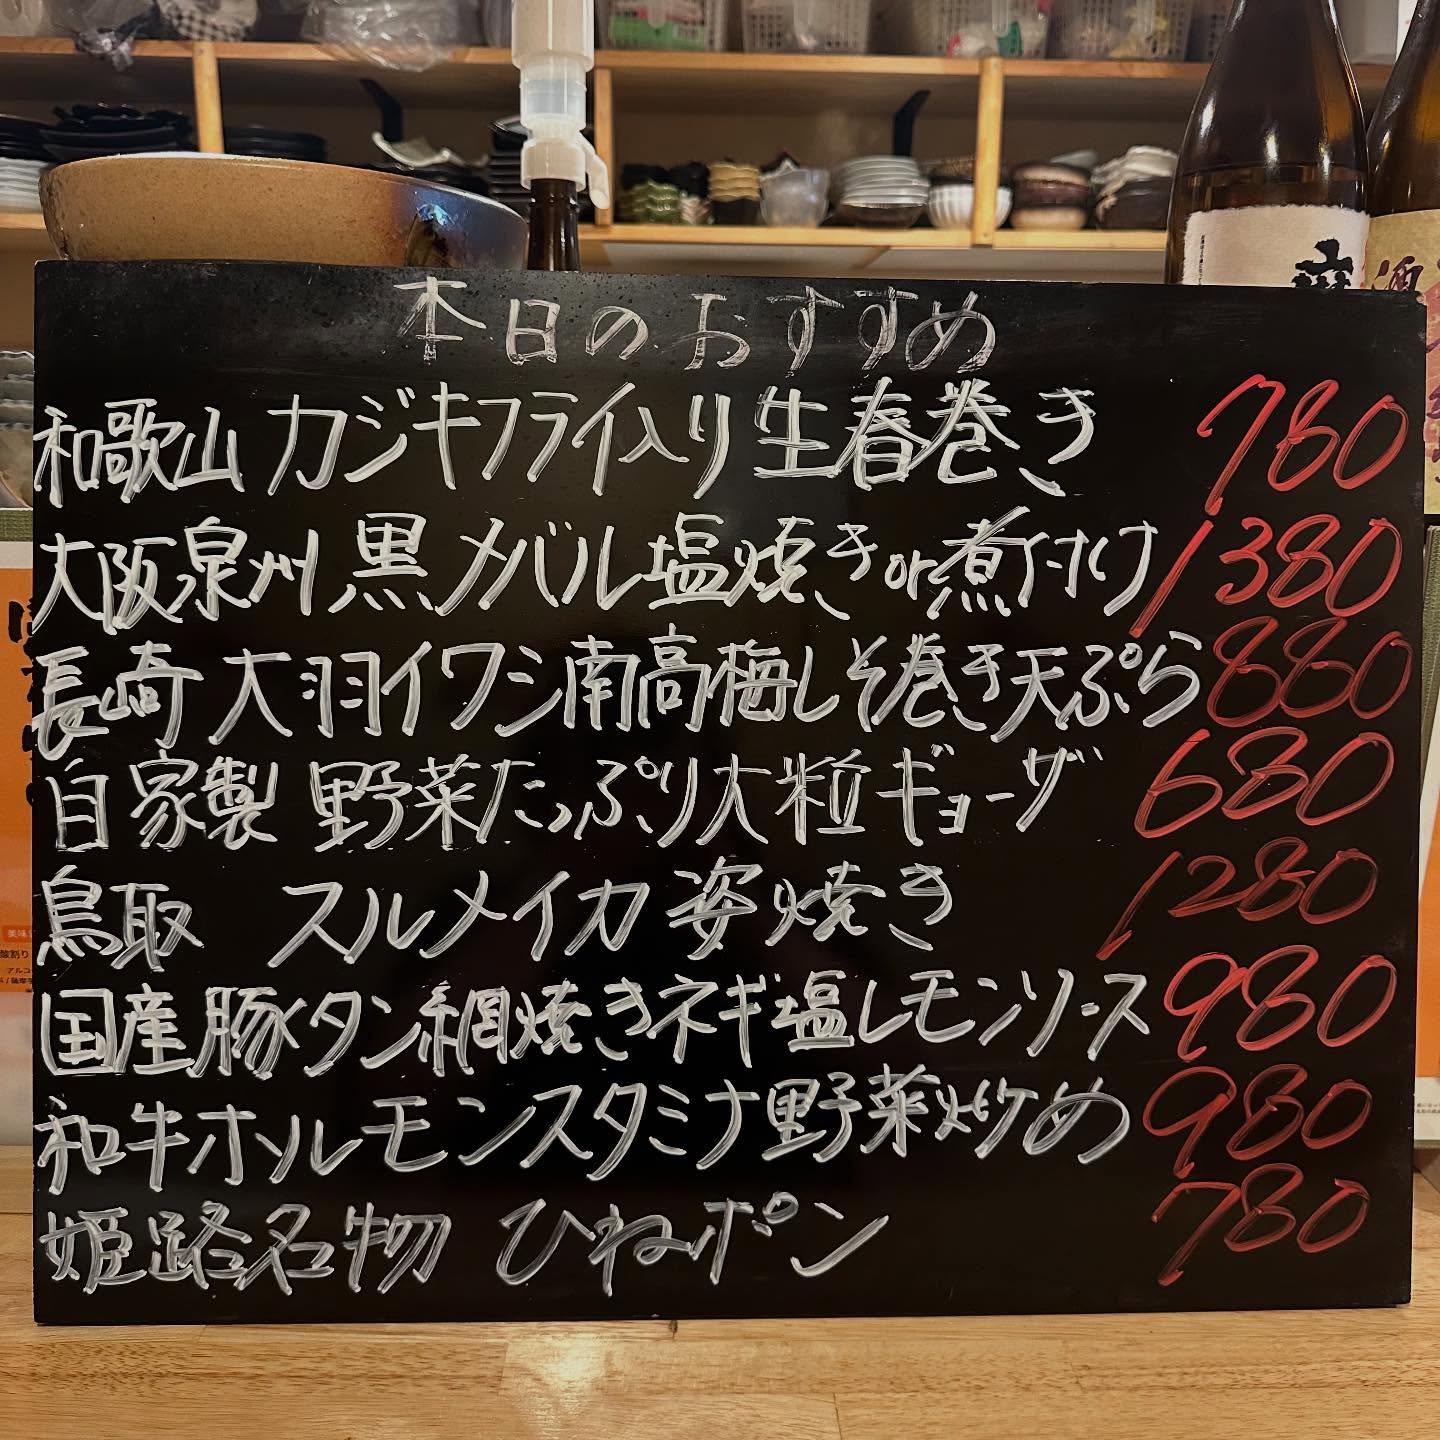 本日のおすすめ
和歌山 カジキフライ入り生春巻き 780
大阪泉州 黒メバル塩焼きor煮付け 1380
長崎 大羽イワシ南高梅しそ巻き天ぷら 880
自家製 野菜たっぷり大粒ギョーザ 680
鳥取 スルメイカ姿焼き 1280
国産豚タン網焼きネギ塩レモンソース 980
和牛ホルモンスタミナ野菜炒め 980
姫路名物 ひねポン 780